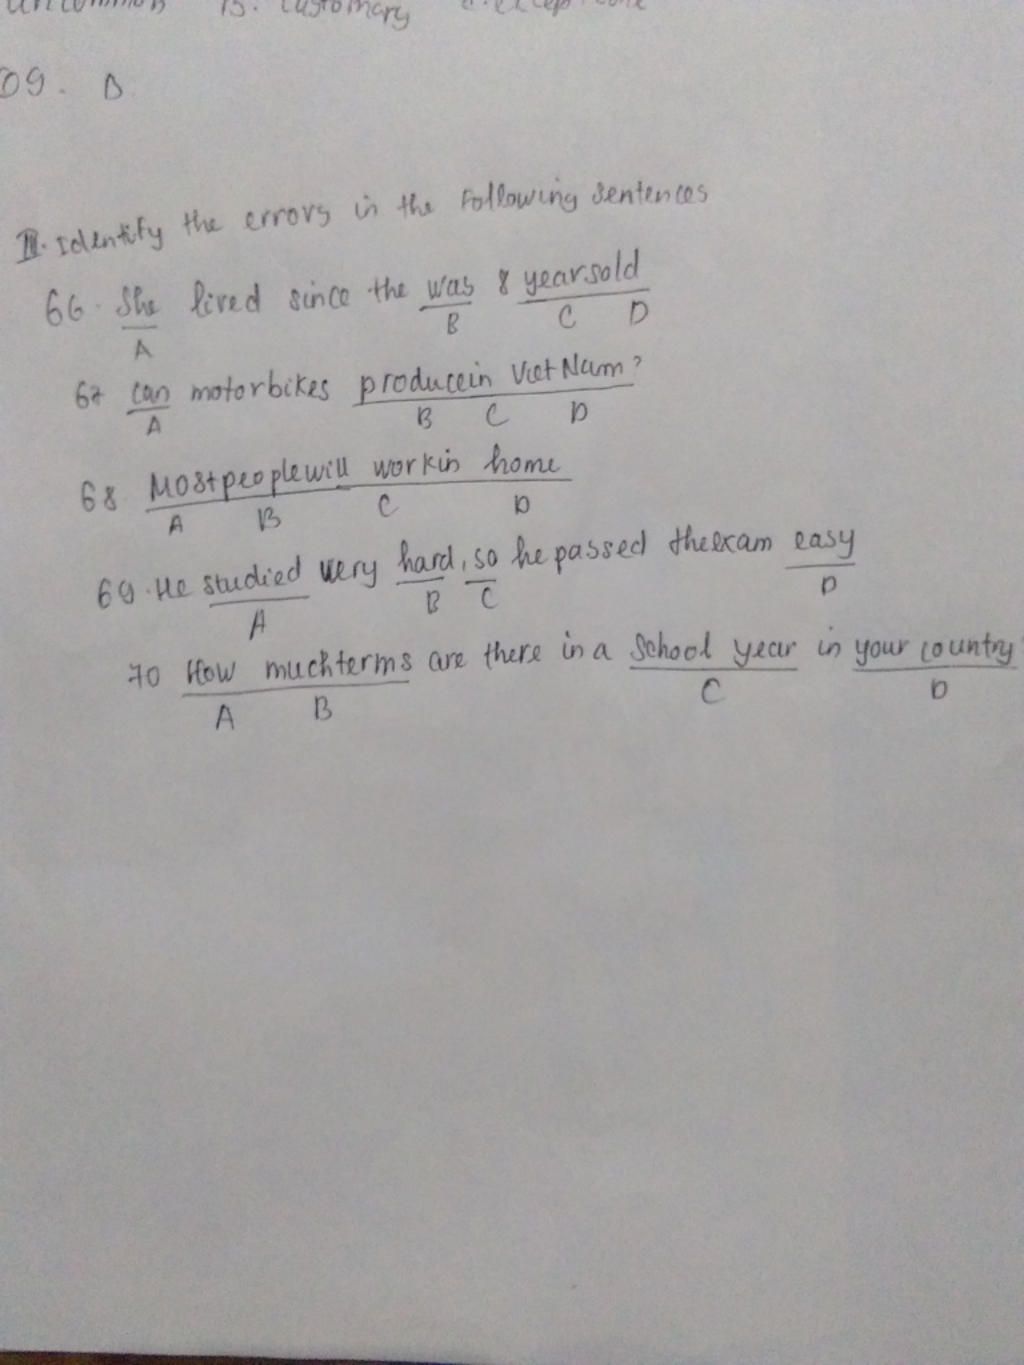 B. customary
09. D
II. Identify the errors in the Following sentences
66. She lived since the was 8 yearsold
A B C D
67 can motorbikes producein Viet Nam?
A B C D
68 Mostpeoplewill workin home
A B C D
69. He studied very hard, so he passed theexam easy
A B C D
70 How muchterms are there in a School year in your country
A B C D